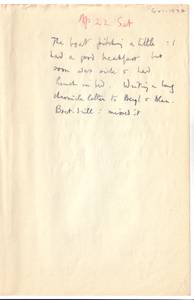 Ap 22 Sat
The boat pitching a little : I
had a good breakfast but
soon was sick & had
lunch in bed. Writing a long
chronicle letter to Beryl &
Boat drill : missed it